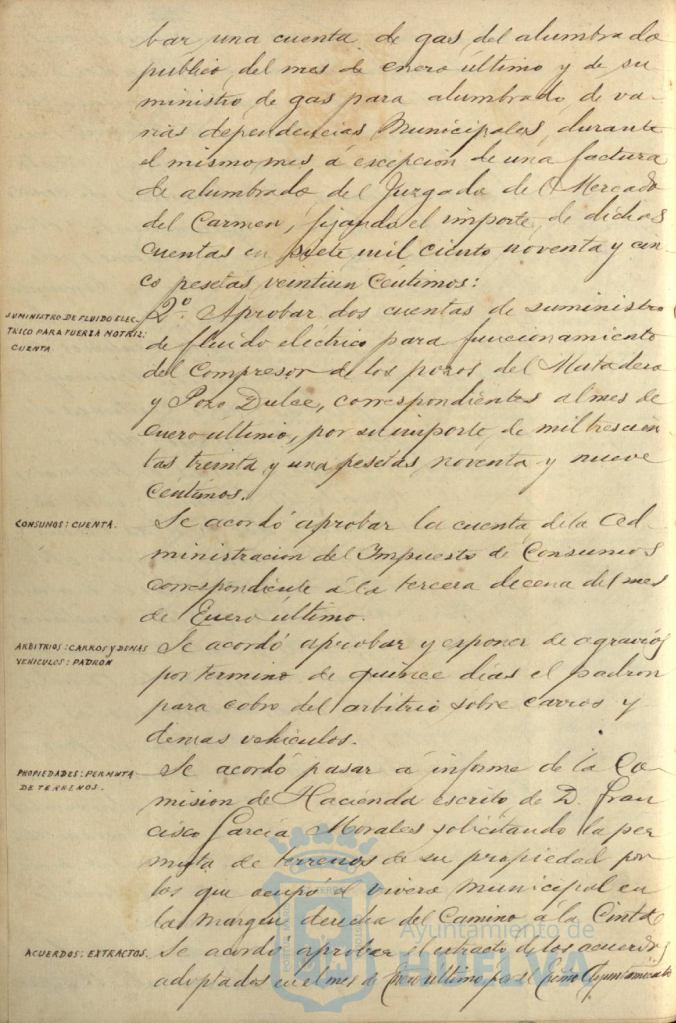 bar una cuenta de gas del alumbrado
publico del mes de enero último y de su
ministro de gas para alumbrado de va-
rias dependencias Municipales, durante
el mismo mes á excepcion de una factura
de alumbrado del Juzgado del Mercado
del Carmen, fijando el importe de dichas
cuentas en siete mil ciento noventa y cin
co pesetas, veintiun Céntimos:
SUMINISTRO DE FLUIDO ELEC-
TRICO PARA FUERZA MOTRIZ:
CUENTA
2º. Aprobar dos cuentas de suministro
de fluido eléctrico para funcionamiento
del Compresor de los pozos del Matadero
y Pozo Dulce, correspondientes al mes de
Enero ultimo, por su importe de mil trescien
tas treinta y una pesetas, noventa y nueve
Céntimos.
CONSUMOS: CUENTA.
Se acordó aprobar la cuenta de la Ad-
ministracion del Impuesto de Consumos
correspondiente á la tercera decena del mes
de Enero último.
ARBITRIOS: CARROS Y DEMAS
VEHICULOS: PADRON
Se acordó aprobar y esponer de agravios
por termino de quince dias el padron
para cobro del arbitrio sobre carros y
demas vehiculos.
PROPIEDADES: PERMUTA
DE TERRENOS.
Se acordó pasar á informe de la Co-
mision de Hacienda escrito de D. Fran
cisco Garcia Morales solicitando la per
muta de terrenos de su propiedad por
los que ocupó el vivero municipal en
la margen derecha del Camino á la Cinta
ACUERDOS: EXTRACTOS.
Se acordó aprobar el extracto de los acuerdos
adoptados en el mes de Enero ultimo por el Excmo Ayuntamiento
Ayuntamiento de
HUELVA